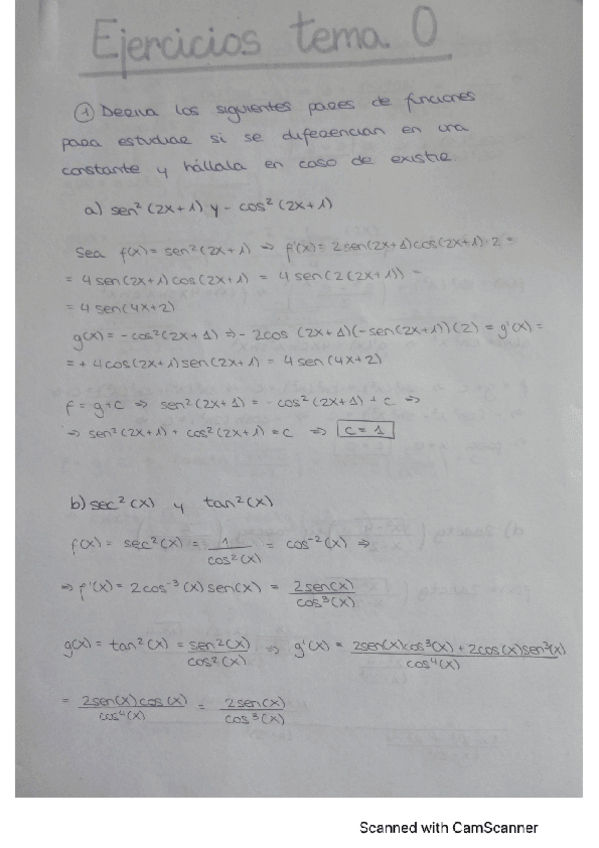 Ejercicios tema 0
① Deriva los siguientes pares de funciones
para estudiar si se diferencian en una
constante y hállala en caso de existir.
a) sen² (2x+1) y - cos² (2x+1)
Sea f(x) = sen² (2x+1) ⇒ f'(x) = 2sen(2x+1)cos(2x+1)·2 =
= 4sen(2x+1)cos(2x+1) = 4sen(2(2x+1)) =
= 4sen(4x+2)
g(x) = -cos²(2x+1) ⇒ -2cos (2x+1)(-sen(2x+1))(2) = g'(x) =
= +4cos(2x+1)sen(2x+1) = 4sen(4x+2)
f = g+c ⇒ sen²(2x+1) = -cos²(2x+1) + c ⇒
⇒ sen²(2x+1) + cos²(2x+1) = c ⇒ c = 1
b) sec² (x) y tan² (x)
f(x) = sec²(x) = 1/cos²(x) = cos⁻²(x) ⇒
⇒ f'(x) = 2cos⁻³(x)sen(x) = 2sen(x)/cos³(x)
g(x) = tan²(x) = sen²(x)/cos²(x) ⇒ g'(x) = 2sen(x)cos³(x) + 2cos(x)sen³(x)/cos⁴(x)
= 2sen(x)cos(x)/cos⁴(x) = 2sen(x)/cos³(x)
Scanned with CamScanner